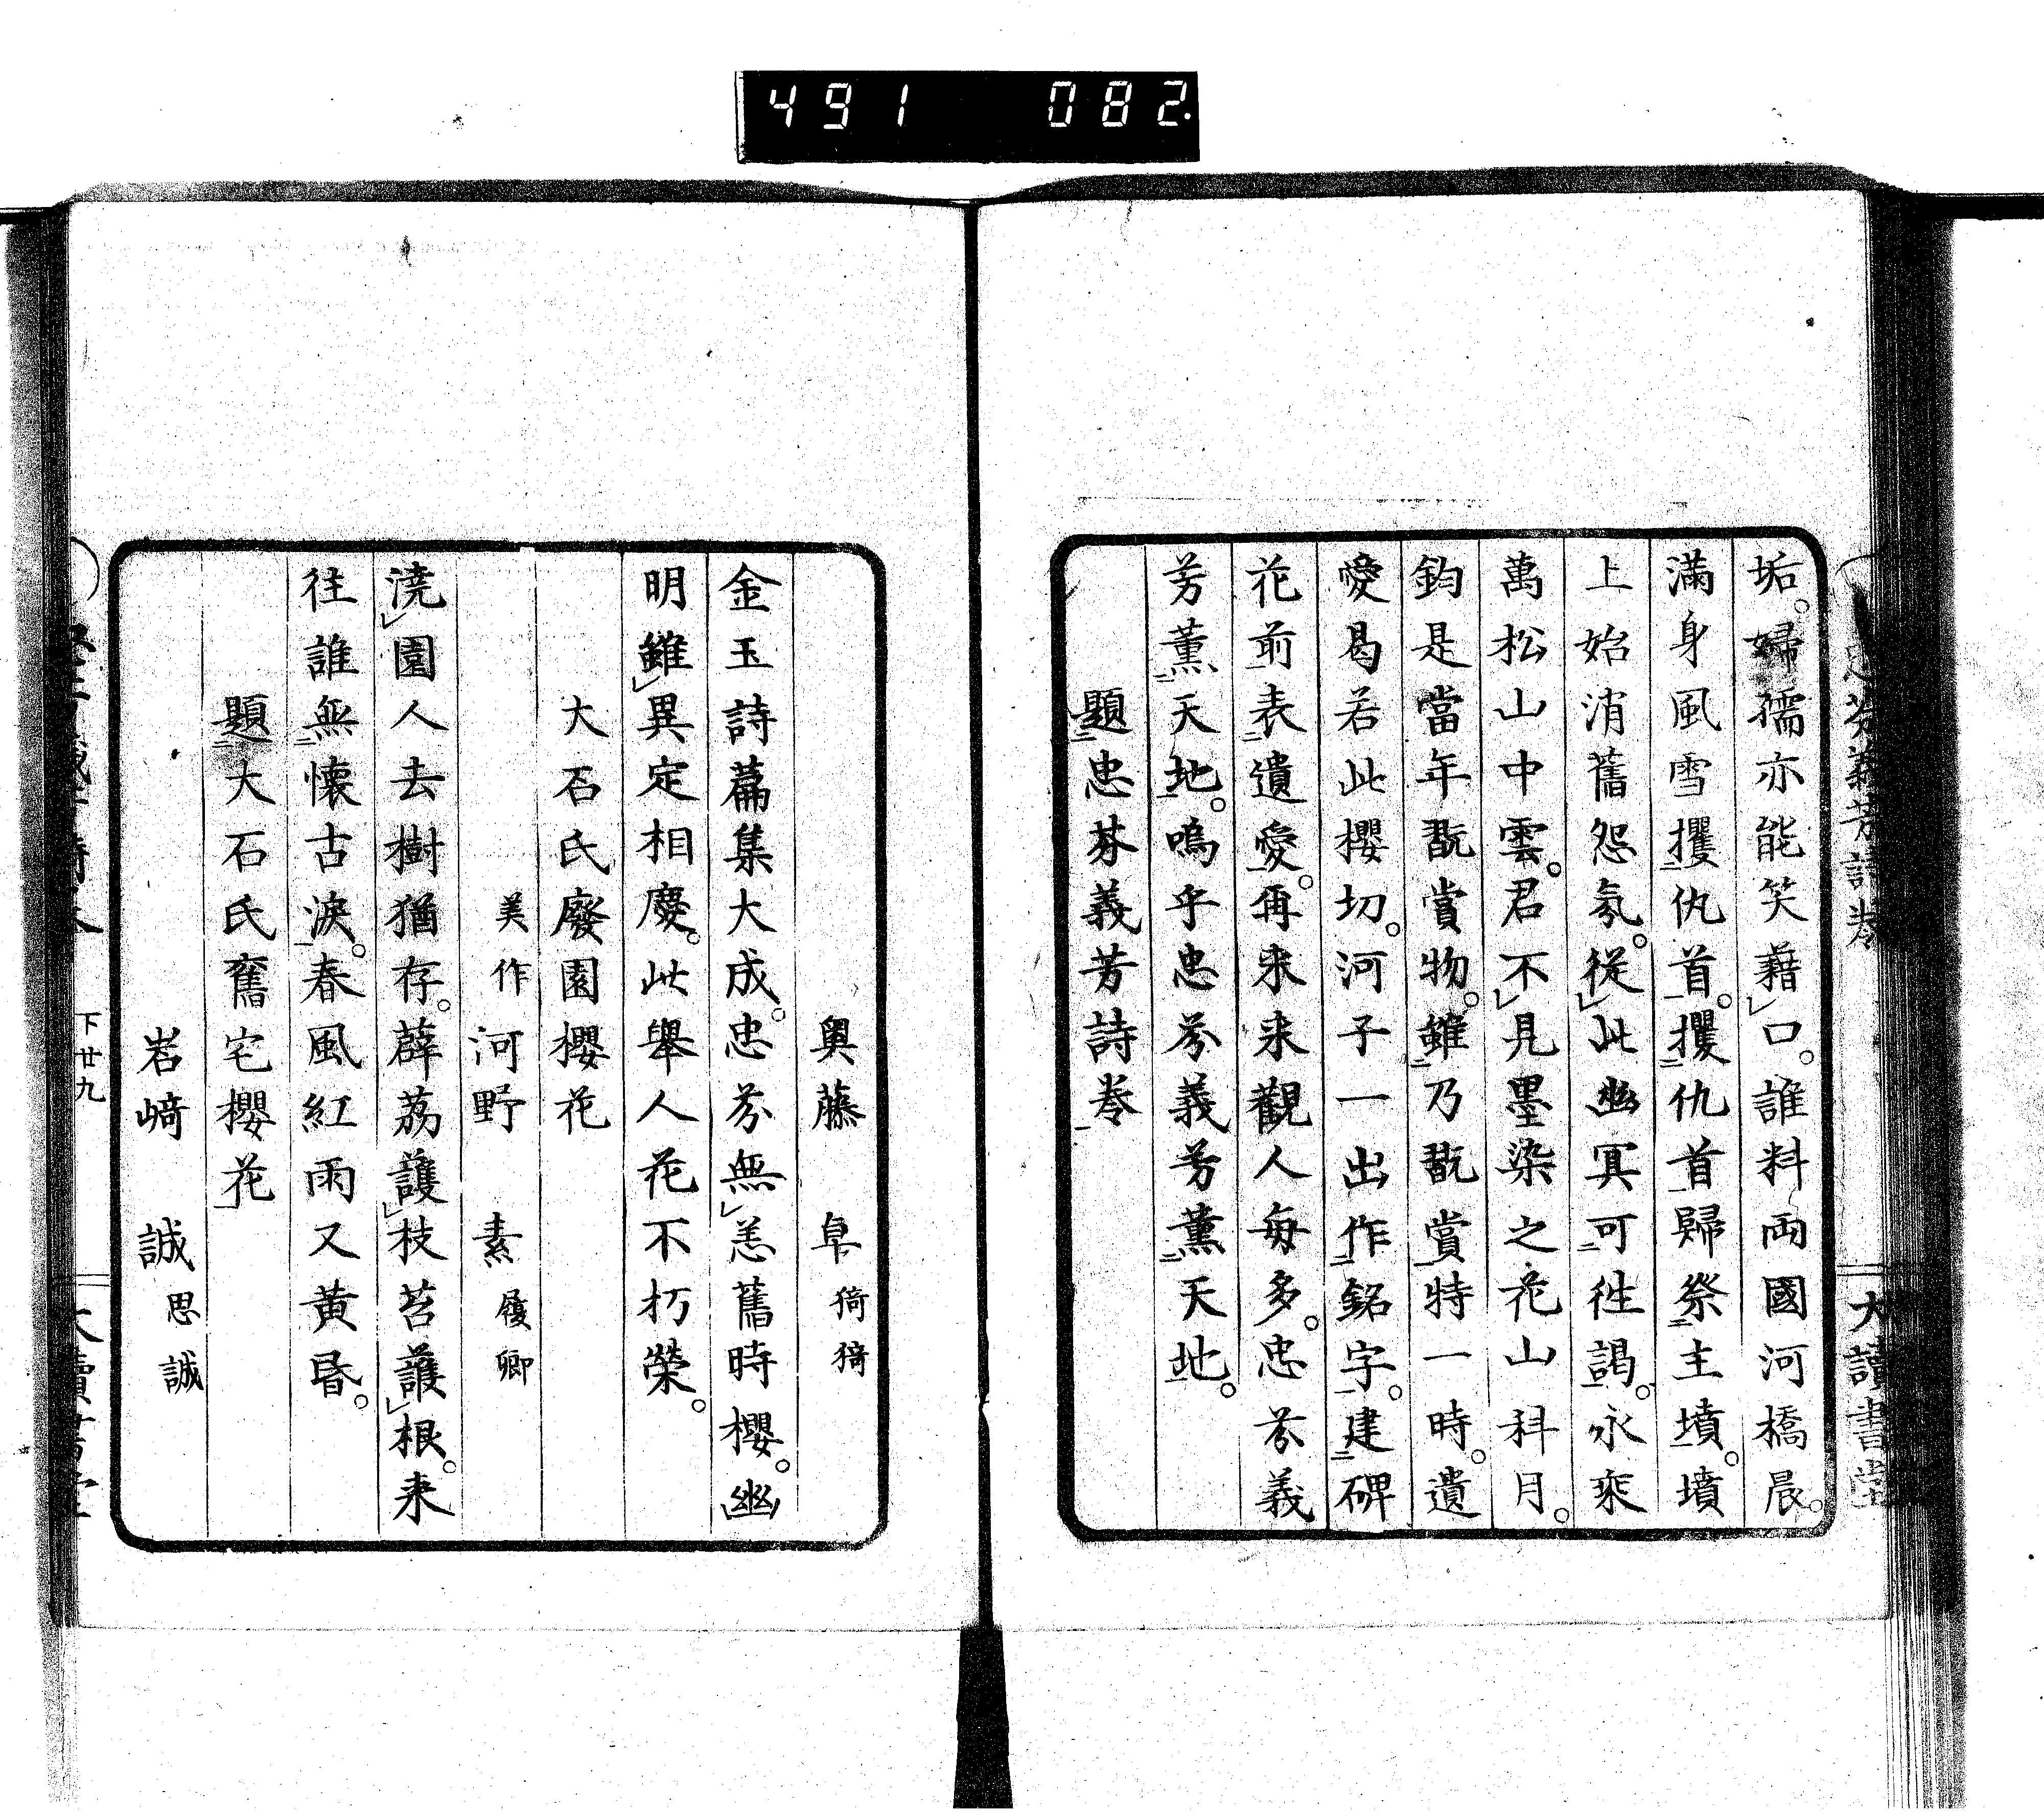 491 082
忠芬義芳詩巻
大讀書堂
垢。婦孺亦能笑藉口。誰料両國河橋晨。
滿身風雪攫仇首。攫仇首歸祭主墳。墳
上始消舊怨氛。從此幽冥可徃謁。永乖
萬松山中雲。君不見墨染之花山科月。
鈞是當年翫賞物。雖乃翫賞特一時。遺
愛曷若此櫻切。河子一出作銘字。建碑
花前表遺愛。再来来觀人毎多。忠芬義
芳薫天地。嗚乎忠芬義芳薫天地。
題忠芬義芳詩巻
奥藤 皐 猗猗
金玉詩篇集大成。忠芬無恙舊時櫻。幽
明雖異定相慶。此舉人花不朽榮。
大石氏廢園櫻花
美作 河野 素 履卿
澆園人去樹猶存。薜荔護枝苔護根。来
往誰無懐古淚。春風紅雨又黄昏。
題大石氏舊宅櫻花
岩﨑 誠 思誠
下廿九